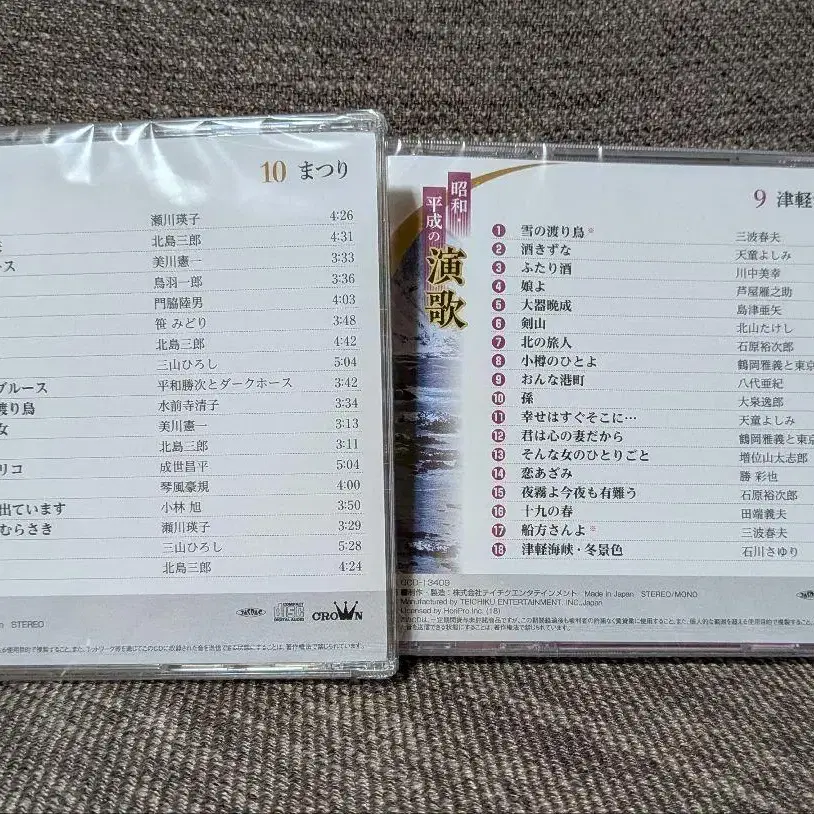 10 まつり
瀬川瑛子 4:26
北島三郎 4:31
ース 美川憲一 3:33
鳥羽一郎 3:36
門脇陸男 4:03
笹 みどり 3:48
北島三郎 4:42
三山ひろし 5:04
ブルース 平和勝次とダークホース 3:42
渡り鳥 水前寺清子 3:34
女 美川憲一 3:13
北島三郎 3:11
リコ 成世昌平 5:04
琴風豪規 4:00
出ています 小林 旭 3:50
むらさき 瀬川瑛子 3:29
三山ひろし 5:28
北島三郎 4:24
COMPACT
disc
DIGITAL AUDIO
CROWN
STEREO
昭和・
平成の
演歌
9 津軽
1 雪の渡り鳥※ 三波春夫
2 酒きずな 天童よしみ
3 ふたり酒 川中美幸
4 娘よ 芦屋雁之助
5 大器晩成 島津亜矢
6 剣山 北山たけし
7 北の旅人 石原裕次郎
8 小樽のひとよ 鶴岡雅義と東京
9 おんな港町 八代亜紀
10 孫 大泉逸郎
11 幸せはすぐそこに… 天童よしみ
12 君は心の妻だから 鶴岡雅義と東京
13 そんな女のひとりごと 増位山太志郎
14 恋あざみ 勝 彩也
15 夜霧よ今夜も有難う 石原裕次郎
16 十九の春 田端義夫
17 船方さんよ※ 三波春夫
18 津軽海峡・冬景色 石川さゆり
-13409
■制作・製造：株式会社テイチクエンタテインメント Made in Japan STEREO/MONO
Manufactured by TEICHIKU ENTERTAINMENT, INC., Japan
Licensed by HoriPro Inc. (18)